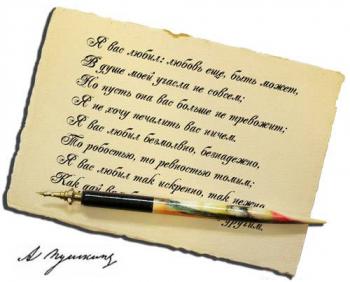 Я вас любил: любовь еще, быть может,
В душе моей угасла не совсем;
Но пусть она вас больше не тревожит;
Я не хочу печалить вас ничем.
Я вас любил безмолвно, безнадежно,
То робостью, то ревностью томим;
Я вас любил так искренно, так нежно,
Как дай
другим.
А Пушкинъ